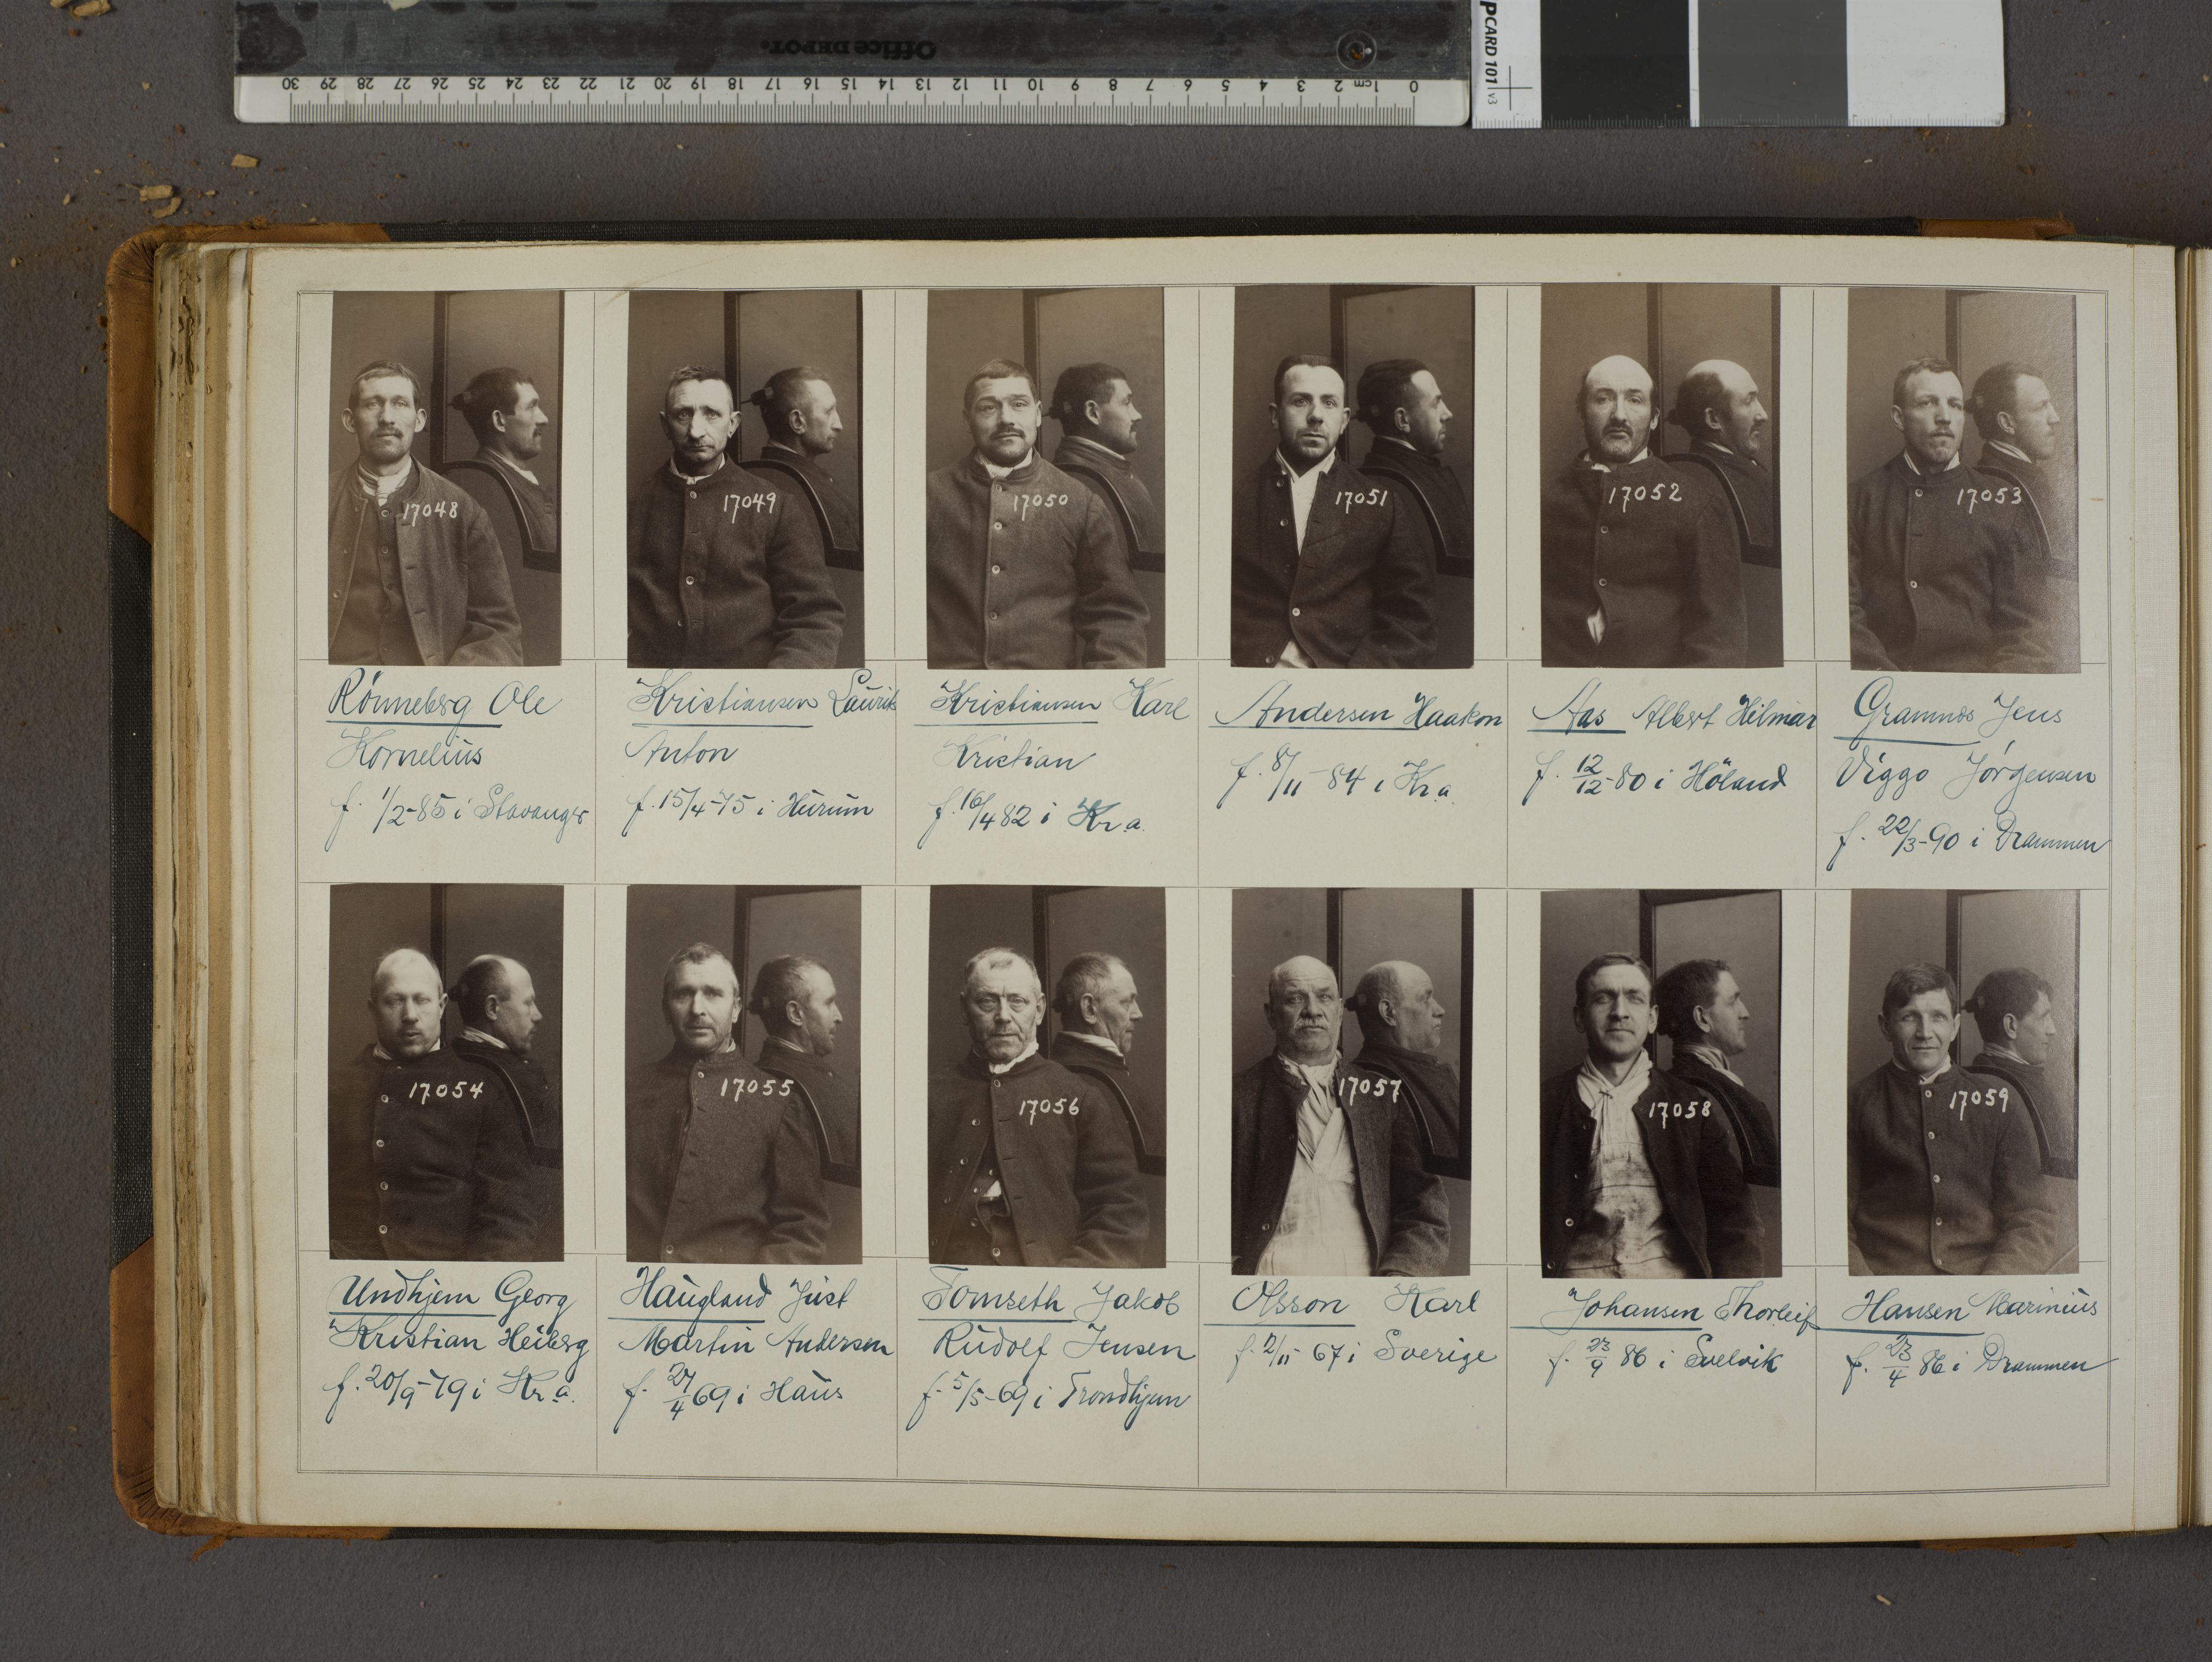 Office DEPOT.
30 29 28 27 26 25 24 23 22 21 20 19 18 17 16 15 14 13 12 11 10 9 8 7 6 5 4 3 2 1cm 0
PCARD 101 v3
17048
17049
17050
17051
17052
17053
Rönneberg Ole
Kornelius
f. 1/2-85 i Stavanger
Kristiansen Laurits
Anton
f. 15/4-75 i Hurum
Kristiansen Karl
Kristian
f. 16/4 82 i Kr.a.
Andersen Haakon
f. 8/11-84 i Kr.a.
Aas Albert Hilmar
f. 12/12-80 i Höland
Gramnæs Jens
Viggo Jörgensen
f. 22/3-90 i Drammen
17054
17055
17056
17057
17058
17059
Undhjem Georg
Kristian Heiberg
f. 20/9-79 i Kr.a.
Haugland Just
Martin Andersen
f. 27/4 69 i Haus
Tomseth Jakob
Rudolf Jensen
f. 5/5-69 i Trondhjem
Olsson Karl
f. 2/11-67 i Sverige
Johansen Thorleif
f. 23/9 86 i Svelvik
Hansen Marinius
f. 23/4 86 i Drammen